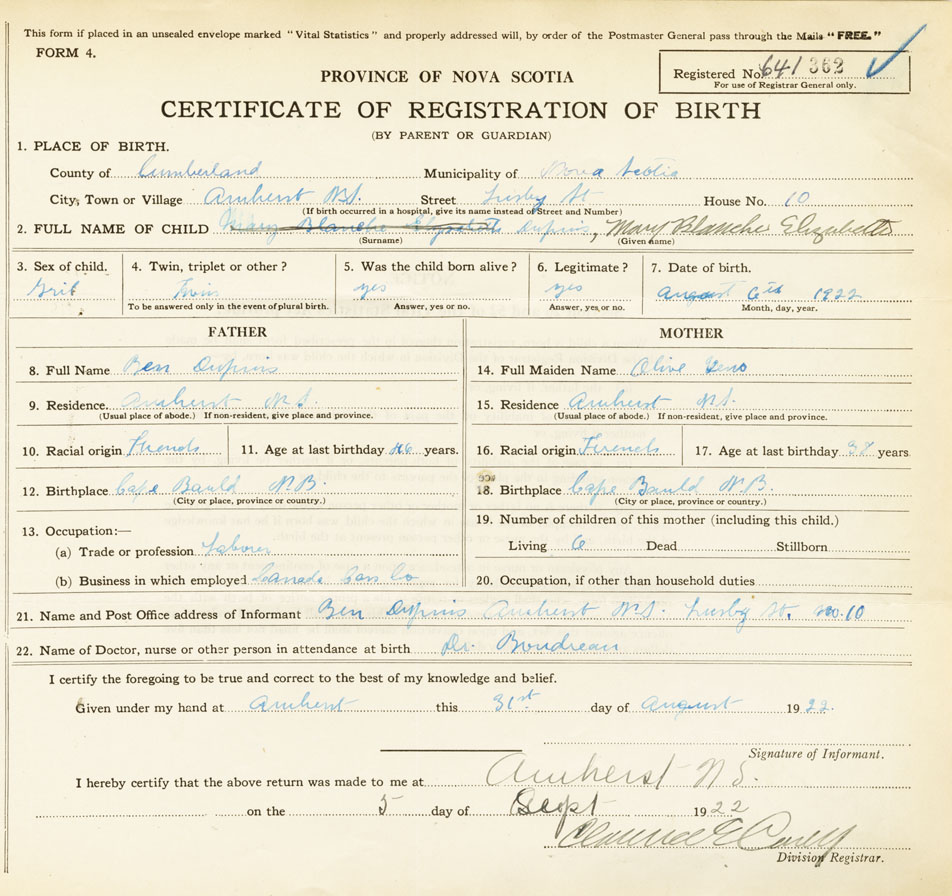 This form if placed in an unsealed envelope marked "Vital Statistics" and properly addressed will, by order of the Postmaster General pass through the Mails "FREE."
FORM 4.
Registered No. 641362
For use of Registrar General only.
PROVINCE OF NOVA SCOTIA
CERTIFICATE OF REGISTRATION OF BIRTH
(BY PARENT OR GUARDIAN)
1. PLACE OF BIRTH.
County of Cumberland Municipality of Nova Scotia
City, Town or Village Amherst N.S. Street Lusby St House No. 10
(If birth occurred in a hospital, give its name instead of Street and Number)
2. FULL NAME OF CHILD Mary Blanche Dupuis, Mary Blanche Elizabeth
(Surname) (Given name)
3. Sex of child. 4. Twin, triplet or other? 5. Was the child born alive? 6. Legitimate? 7. Date of birth.
Twin yes yes August 6th 1922
To be answered only in the event of plural birth. Answer, yes or no. Answer, yes or no. Month, day, year.
FATHER MOTHER
8. Full Name Ben Dupuis 14. Full Maiden Name Olive
9. Residence. Amherst N.S. 15. Residence Amherst N.S.
(Usual place of abode.) If non-resident, give place and province. (Usual place of abode.) If non-resident, give place and province.
10. Racial origin French 11. Age at last birthday 46 years. 16. Racial origin French 17. Age at last birthday years.
12. Birthplace Cape Bauld N.B. 18. Birthplace Cape Bauld N.B.
(City or place, province or country.) (City or place, province or country.)
13. Occupation:— 19. Number of children of this mother (including this child.)
(a) Trade or profession Laborer Living 6 Dead Stillborn
(b) Business in which employed Canada Cars Co 20. Occupation, if other than household duties
21. Name and Post Office address of Informant Ben Dupuis Amherst N.S. Lusby St. no. 10
22. Name of Doctor, nurse or other person in attendance at birth Dr. Boudreau
I certify the foregoing to be true and correct to the best of my knowledge and belief.
Given under my hand at Amherst this 31st day of August 1922.
Signature of Informant.
I hereby certify that the above return was made to me at Amherst N.S.
on the 5 day of Sept 1922
Division Registrar.